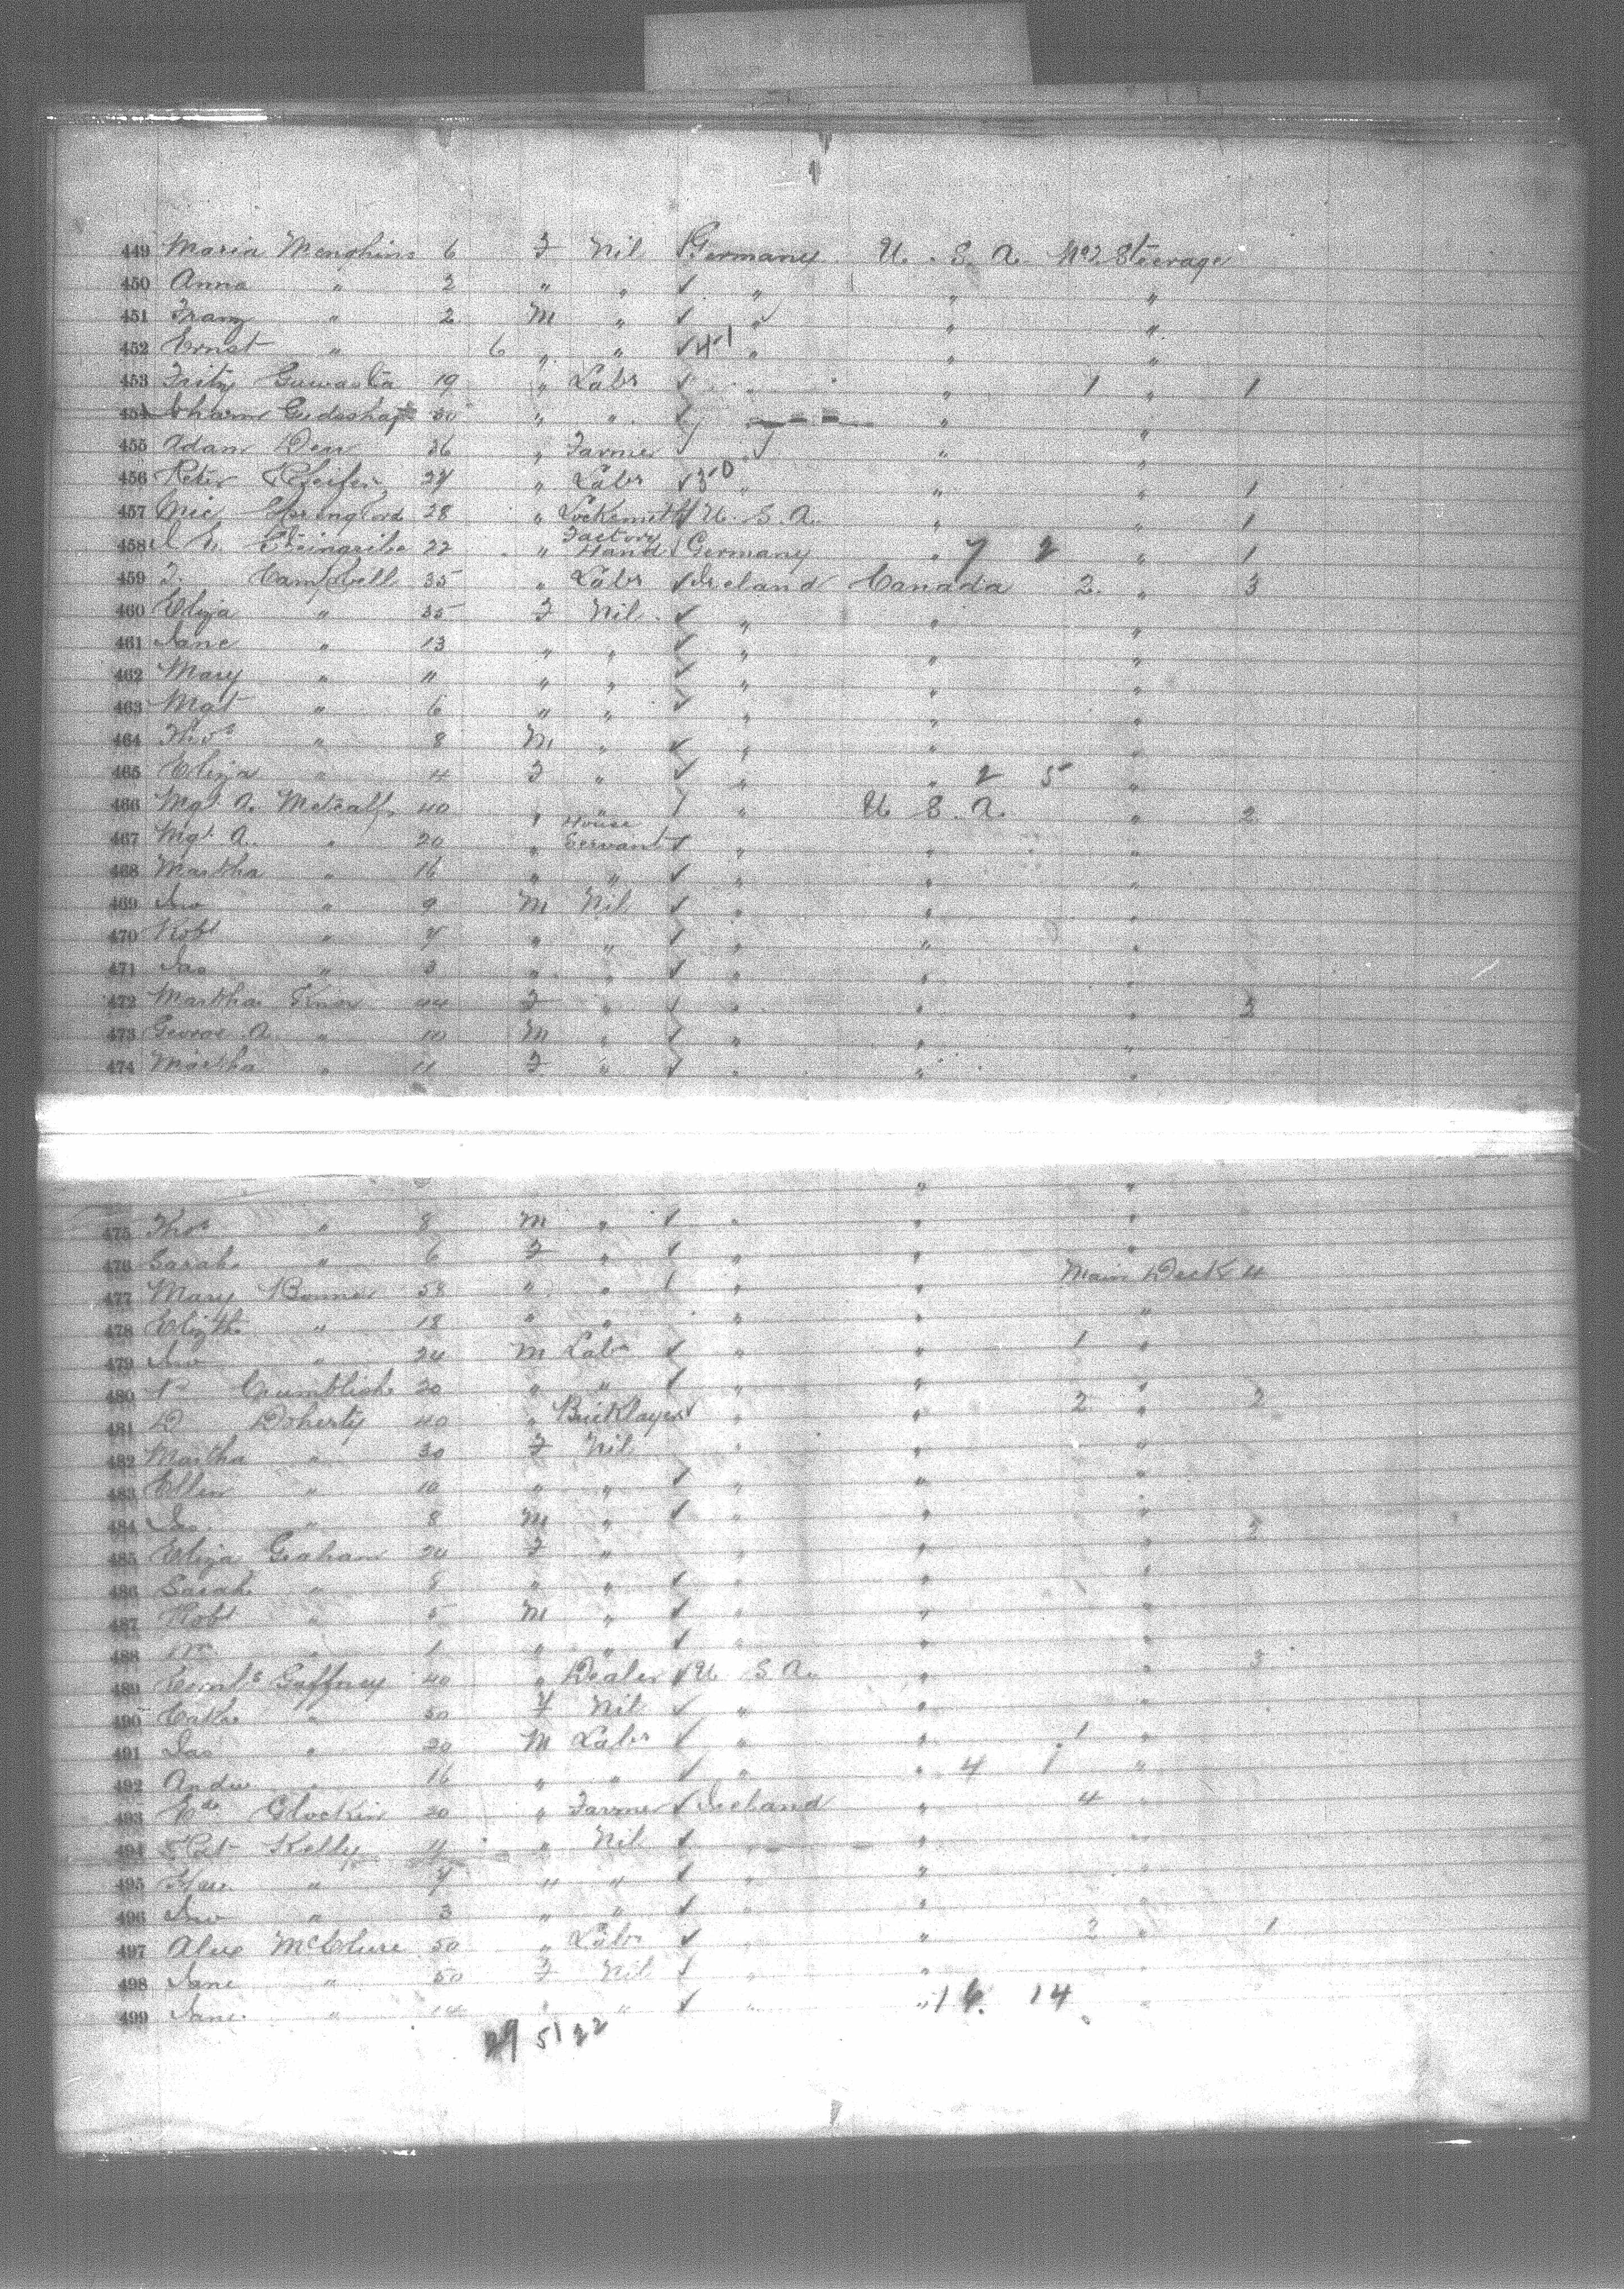 449 Maria Menghins 6 F Nil Germany U. S. A. No 2 Steerage
450 Anna " 2 " " ✓ " " "
451 Franz " 2 M " ✓ " " "
452 Ernst " 6 " " ✓ 4-1 " " "
453 Fritz 19 " Labr ✓ " " 1 " 1
454 30 " " ✓ " "
455 Adam 36 " Farmer " " "
456 Peter Pfeifer 27 " Labr ✓ 3-0 " " " 1
457 28 " Locksmith U. S. A. " " 1
458 22 " Factory Hand Germany " 7 2 " 1
459 Campbell 35 " Labr ✓ Ireland Canada 2 " 3
460 Eliza " 35 F Nil ✓ " " "
461 Jane " 13 " " ✓ " " "
462 Mary " 11 " " ✓ " " "
463 Mgt " 6 " " ✓ " " "
464 Thos " 8 M " ✓ " " "
465 Eliza " 4 F " ✓ " " 2 5 "
466 Mgt. A. Metcalf 40 " " U S. A. " 2
467 Mgt. A. " 20 " House Servant ✓ " " "
468 Martha " 16 " " ✓ " " "
469 Jno " 9 M Nil ✓ " " "
470 Robt " " " ✓ " " "
471 Jas " 3 " " ✓ " " "
472 Martha Knox 44 F " " " " 3
473 George A. " 10 M " ✓ " " "
474 Martha " 11 F " ✓ " " "
475 Thos " 8 M " ✓ " " "
476 Sarah " 6 F " ✓ " " "
477 Mary Bonner 58 " " " " Main Deck 4
478 Elizth " 18 " " " " "
479 Jno " 24 M Labr ✓ " " 1 "
480 P Crumblish 20 " " ✓ " " "
481 D Doherty 40 " Bricklayer ✓ " " 2 " 2
482 Martha " 30 F Nil " " "
483 Ellen " 10 " " ✓ " " "
484 Jas. " 8 M " ✓ " " "
485 Eliza Graham 24 F " " " "
486 Sarah " 8 " " ✓ " " "
487 Robt " 5 M " ✓ " " "
488 Wm " 1 " " ✓ " "
489 Gaffney 40 " Dealer ✓ U S. A. " " 3
490 Cathe " 50 F Nil ✓ " " "
491 Jas " 20 M Labr ✓ " " 1 "
492 Andw " 16 " " ✓ " " 4 1 "
493 Glockin 20 " Farmer ✓ Ireland " 4 "
494 Pat Kelly 11 " Nil ✓ " "
495 " " " ✓ " " "
496 Jno " 3 " " ✓ " " "
497 Alex McClure 50 " Labr ✓ " " 2 " 1
498 Jane " 50 F Nil " " "
499 Jane " 14 " " ✓ " " 16. 14 "
29 51 22